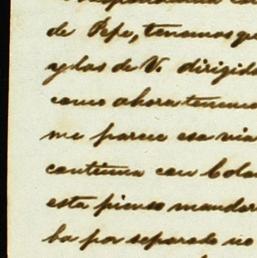 de Pepe, tenemos qu
y las de V. dirigida
como ahora tenemo
me parece esa via
continua con Bola
esta pienso mandar
ba por separado no